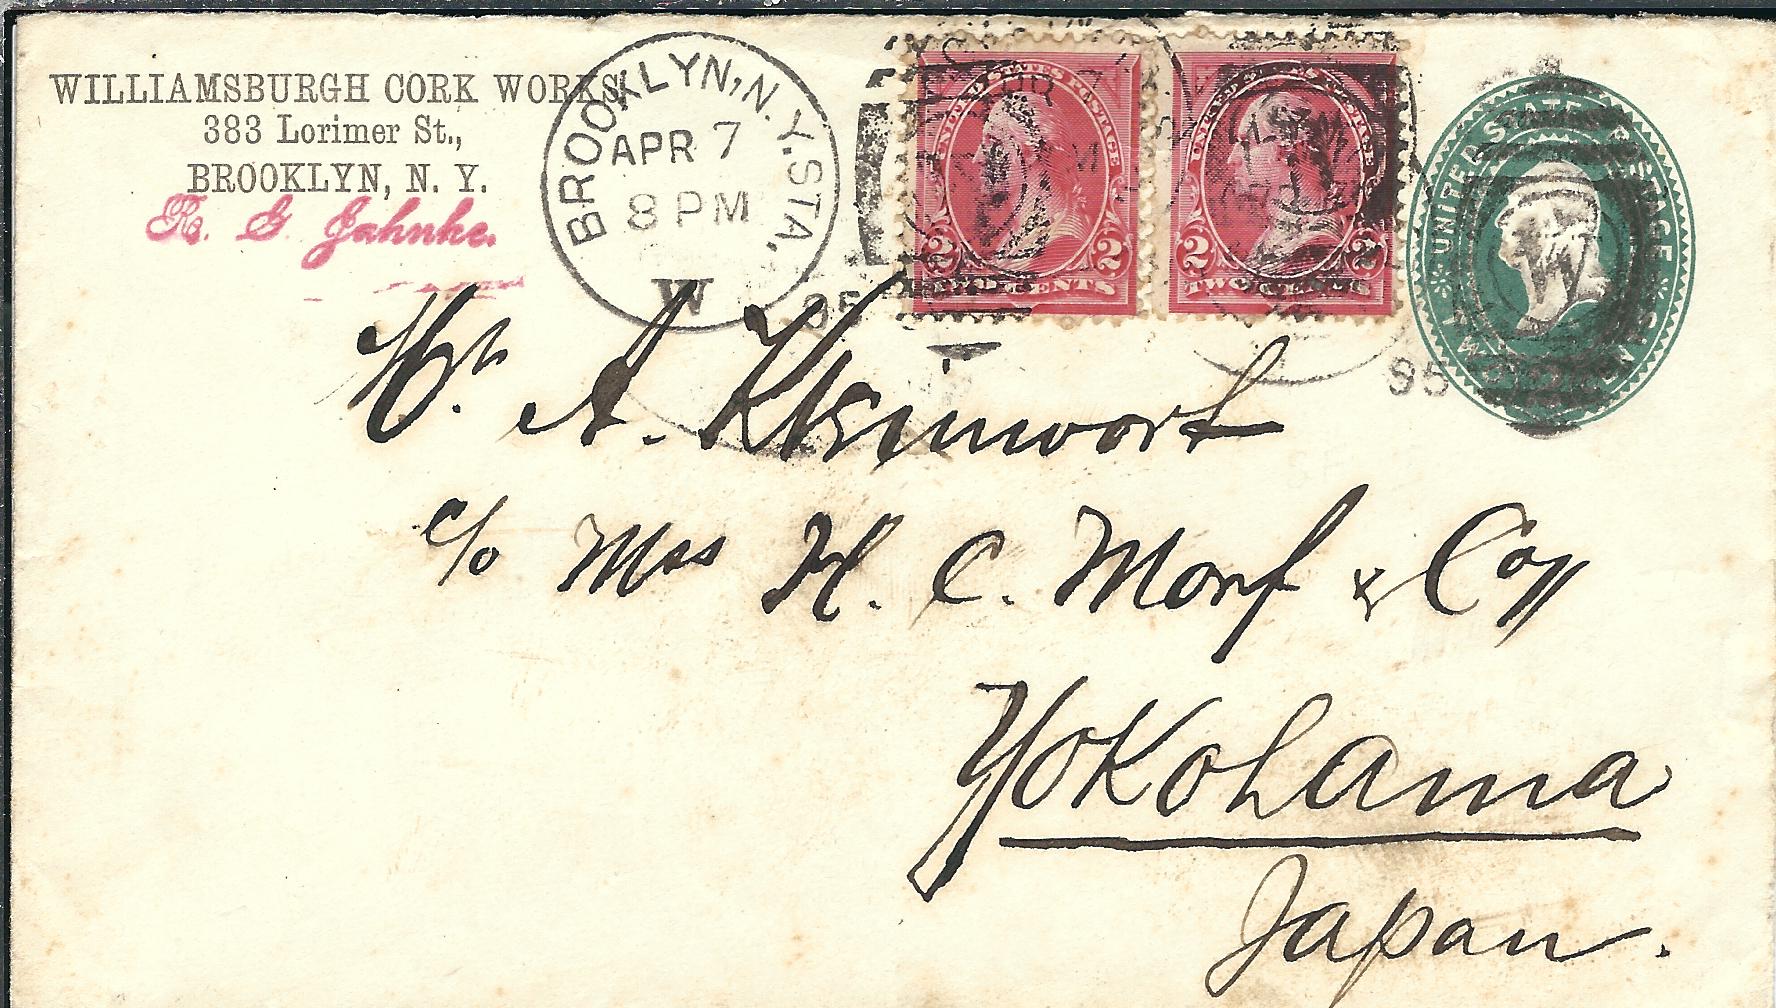 WILLIAMSBURGH CORK WORKS
383 Lorimer St.,
BROOKLYN, N. Y.
R. G. Jahnke.
BROOKLYN, N.Y. STA.
APR 7
8 PM
W
95
UNITED STATES POSTAGE
2 2
TWO CENTS
UNITED STATES POSTAGE
2 2
TWO CENTS
UNITED STATES POSTAGE
W
95
Mr. A. Kleinwort
c/o Mss H. C. Morf & Coy
Yokohama
Japan.